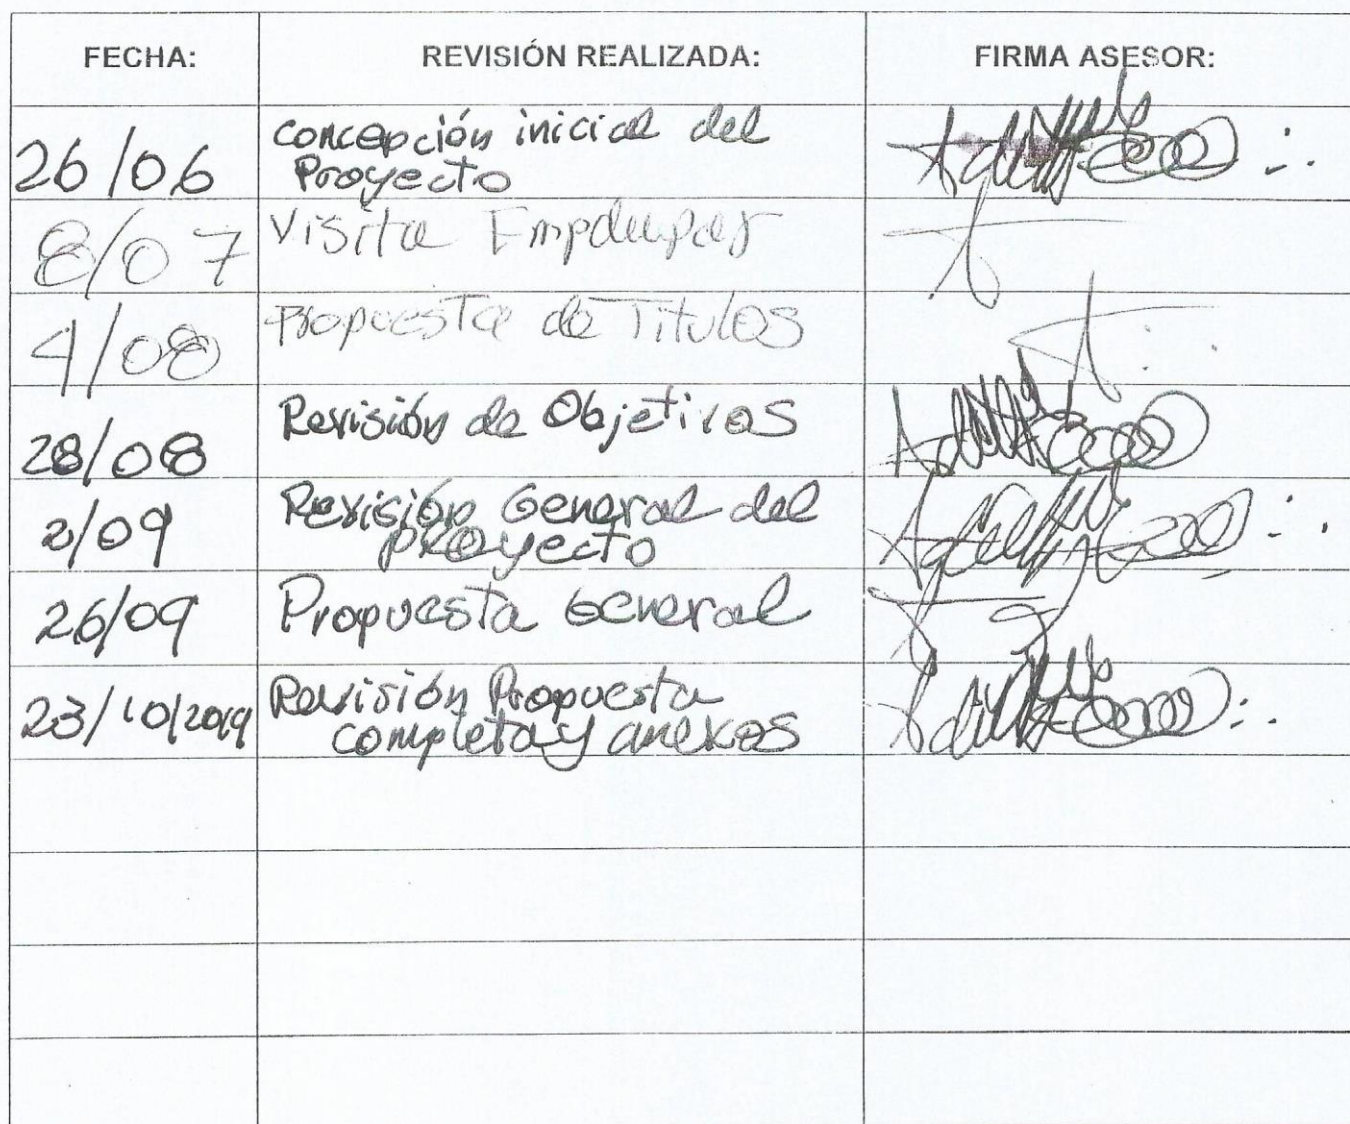 FECHA: REVISIÓN REALIZADA: FIRMA ASESOR:
26/06 concepción inicial del
Proyecto
8/07 Visita Empdupar
4/08 Propuesta de Titulos
28/08 Revisión de Objetivos
2/09 Revisión General del
proyecto
26/09 Propuesta General
23/10/2019 Revisión Propuesta
completa y anexos